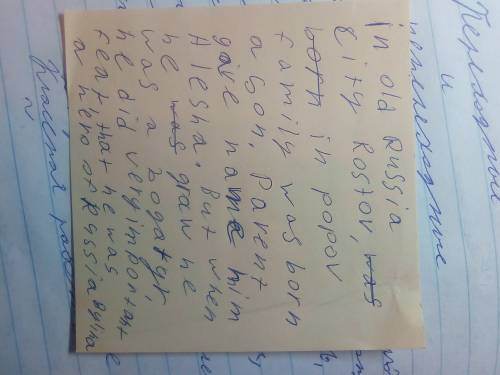 Переходные
и
непереходные
In old Russia
City Rostov, was
born in popov
family was born
a son. Parent
gave name him
Alesha. But when
he was graw he
was a bogatyr,
he did very important
feat, that he was
a hero of Russia